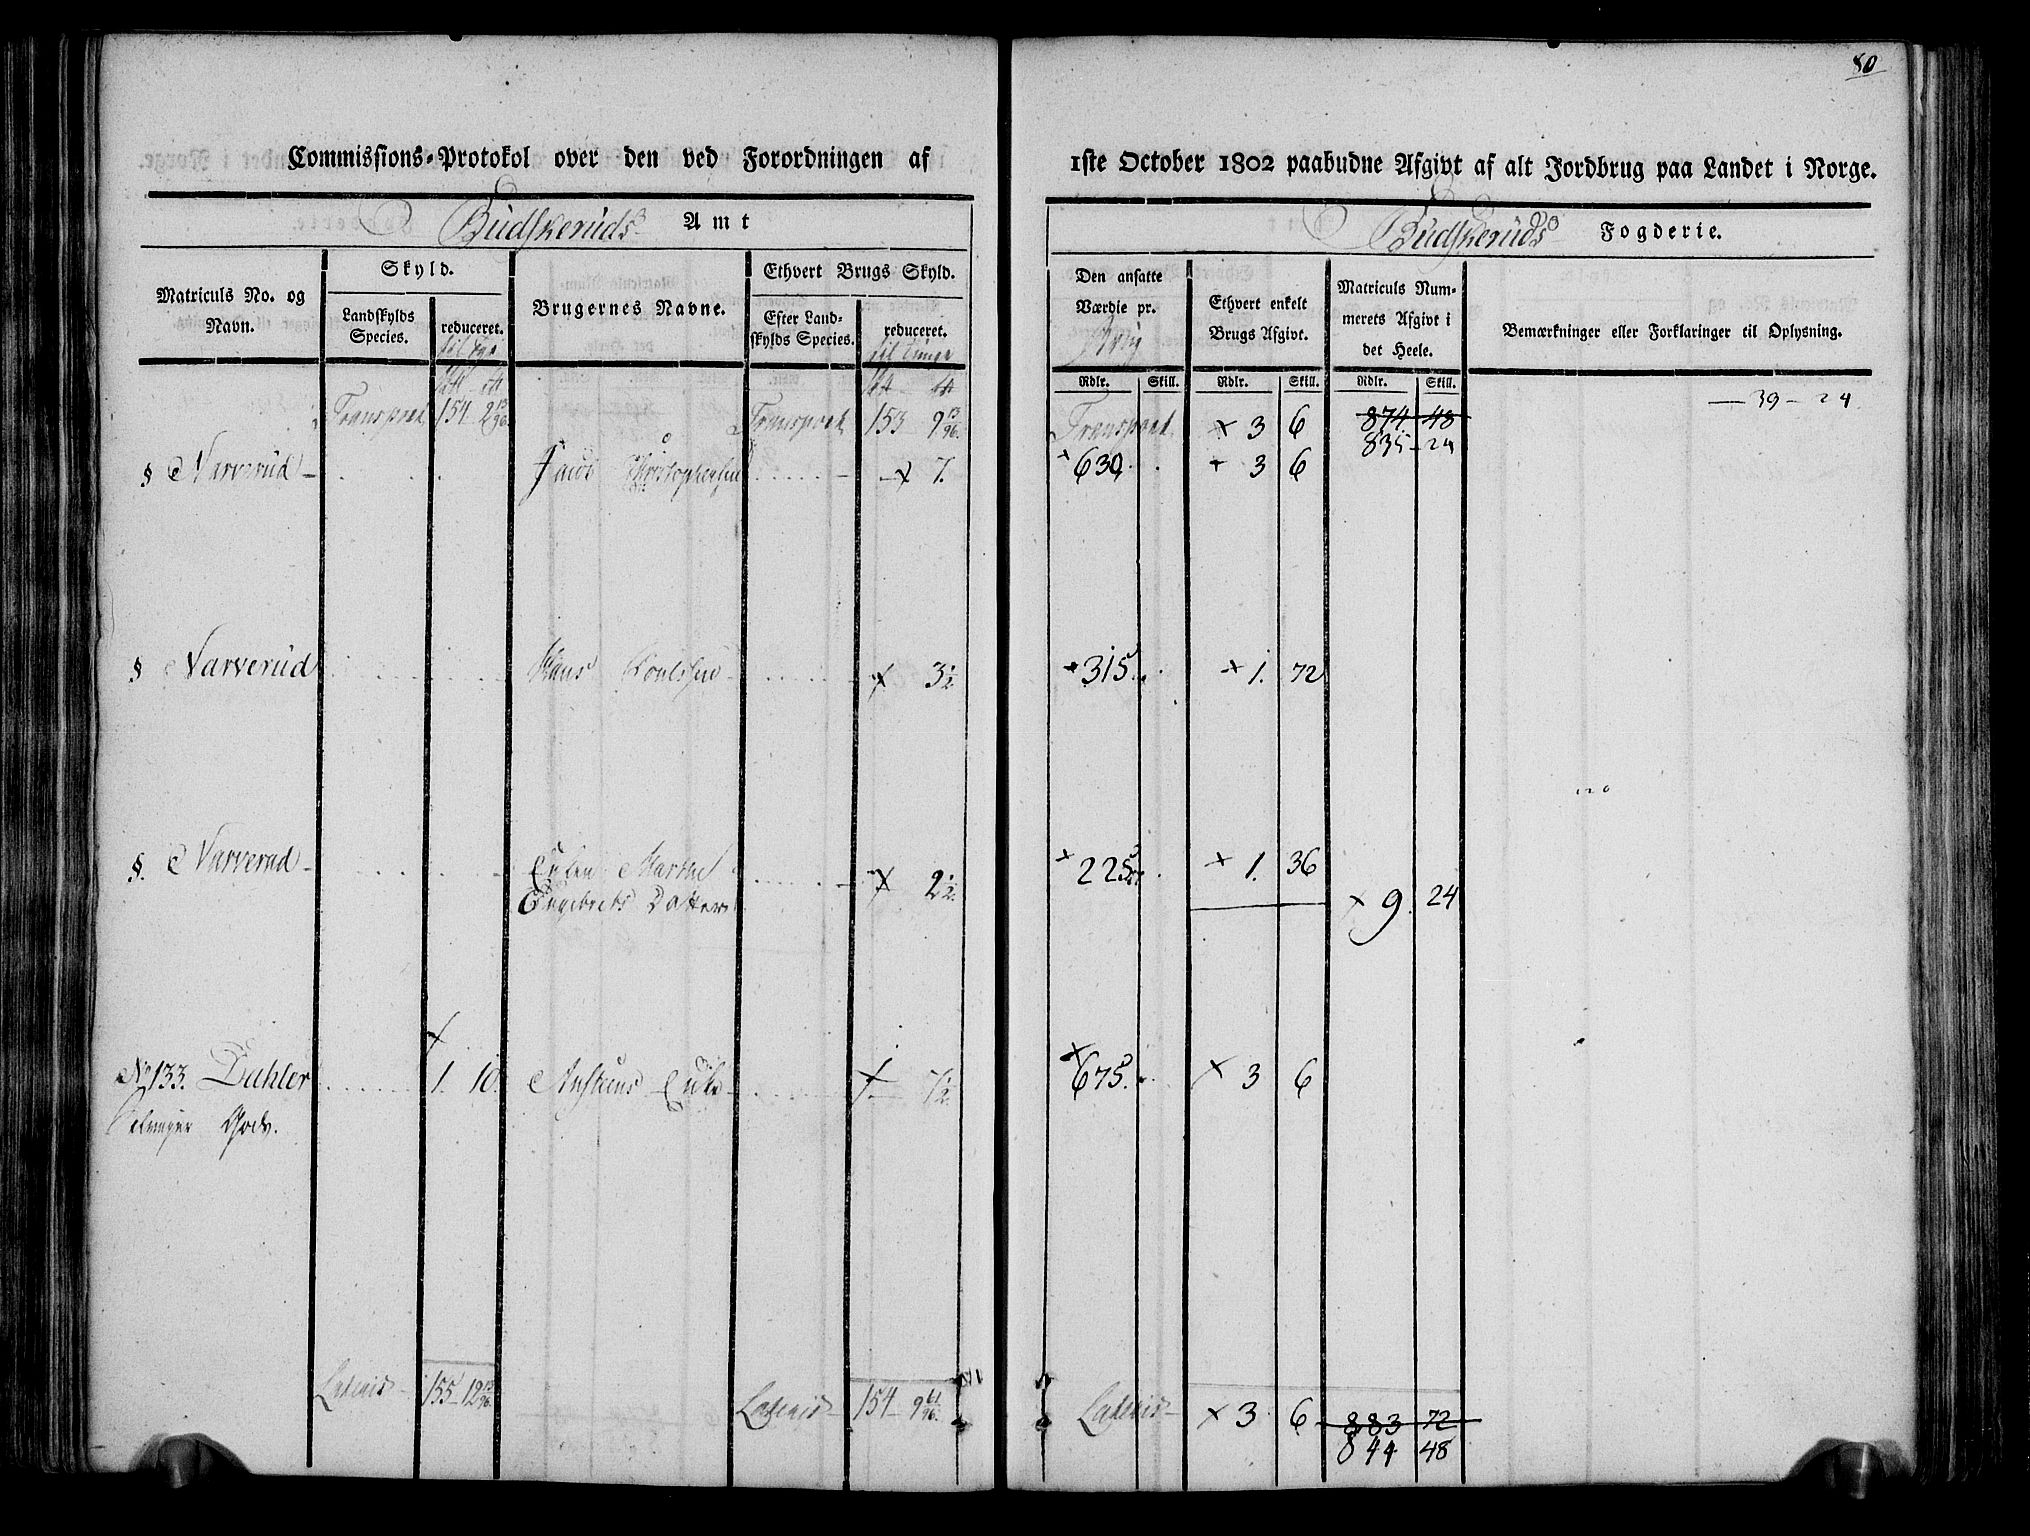 80
Commissions-Protokol over den ved Forordningen af
1ste October 1802 paabudne Afgivt af alt Jordbrug paa Landet i Norge.
Budskeruds Amt
Budskeruds Fogderie.
Matriculs No. og Navn.
Skyld.
Landskylds Species.
reduceret.
Brugernes Navne.
Ethvert Brugs Skyld.
Efter Landskylds Species.
reduceret.
til Tunge
Den ansatte Værdie pr.
Ethvert enkelt Brugs Afgivt.
Matriculs Nummerets Afgivt i det Heele.
Bemærkninger eller Forklaringer til Oplysning.
Rdlr. Skill. Rdlr. Skill. Rdlr. Skill.
Transport 154 2 13/96 Transport 153 9 13/96 Transport × 3 6 874 48 — 39 - 24
835 - 24
§ Narverud Jacob Christophersen × 7. × 630 × 3 6
§ Narverud Hans Poulsen × 3 1/2 × 315 × 1. 72
§. Narverud Enken Marthe × 2 1/2 × 225 × 1. 36
Engebrets Datter × 9. 24
No 133. Dahler × 1. 10. Austeens Enke × 1. 7 1/2 × 675 × 3 6
Gods.
Lateris 155 - 12 13/96 Lateris 154 - 9 61/96 Lateris × 3 6 883 72
844 48